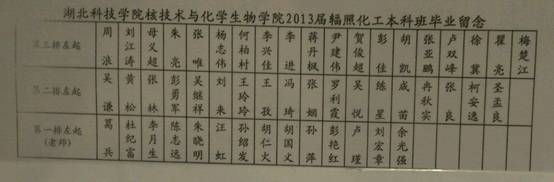 湖北科技学院核技术与化学生物学院2013届辐照化工本科班毕业留念
第三排左起 周浪 刘江涛 母义超 朱亮 张唯 杨志伟 何柏村 李兴佳 李进 蒋丹枫 尹建伟 贺俊超 彭佳 胡凯 张亚鹏 卢双峰 徐冀 瞿亮 梅楚江
第二排左起 吴谦 黄松 张林 彭勇军 吴继祥 刘来 王玲玲 王孜 冯琦 张娴 罗利霞 吴悦 练星 成苗 冉秋实 张良 柯安逸 孟良
第一排左起(老师) 葛兵 杜纪富 李月生 陈志远 朱晓明 汪虹 孙绍发 胡仁火 胡国文 孙萍 彭艳红 卢瑾 刘宏章 余光强